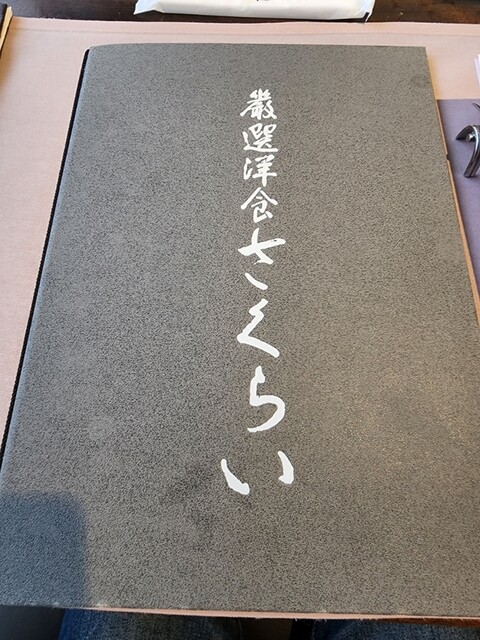 厳選洋食さくらい